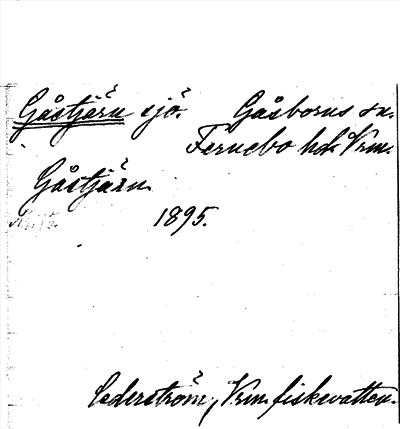 Gåstjärn sjö. Gåsborns sn.
Fernebo hd. Vrm.
Gåstjärn
1895.
Cederström, Vrm. fiskevatten.